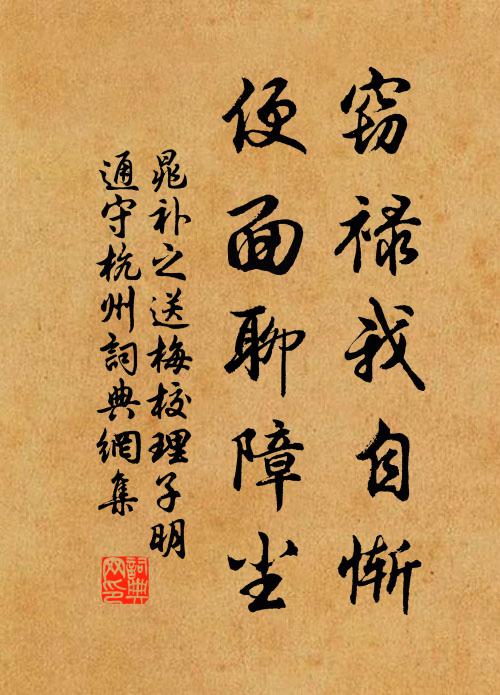 窃禄我自惭
便面聊障尘
晁补之送梅校理子明
通守杭州詞典網集
詞典
网印